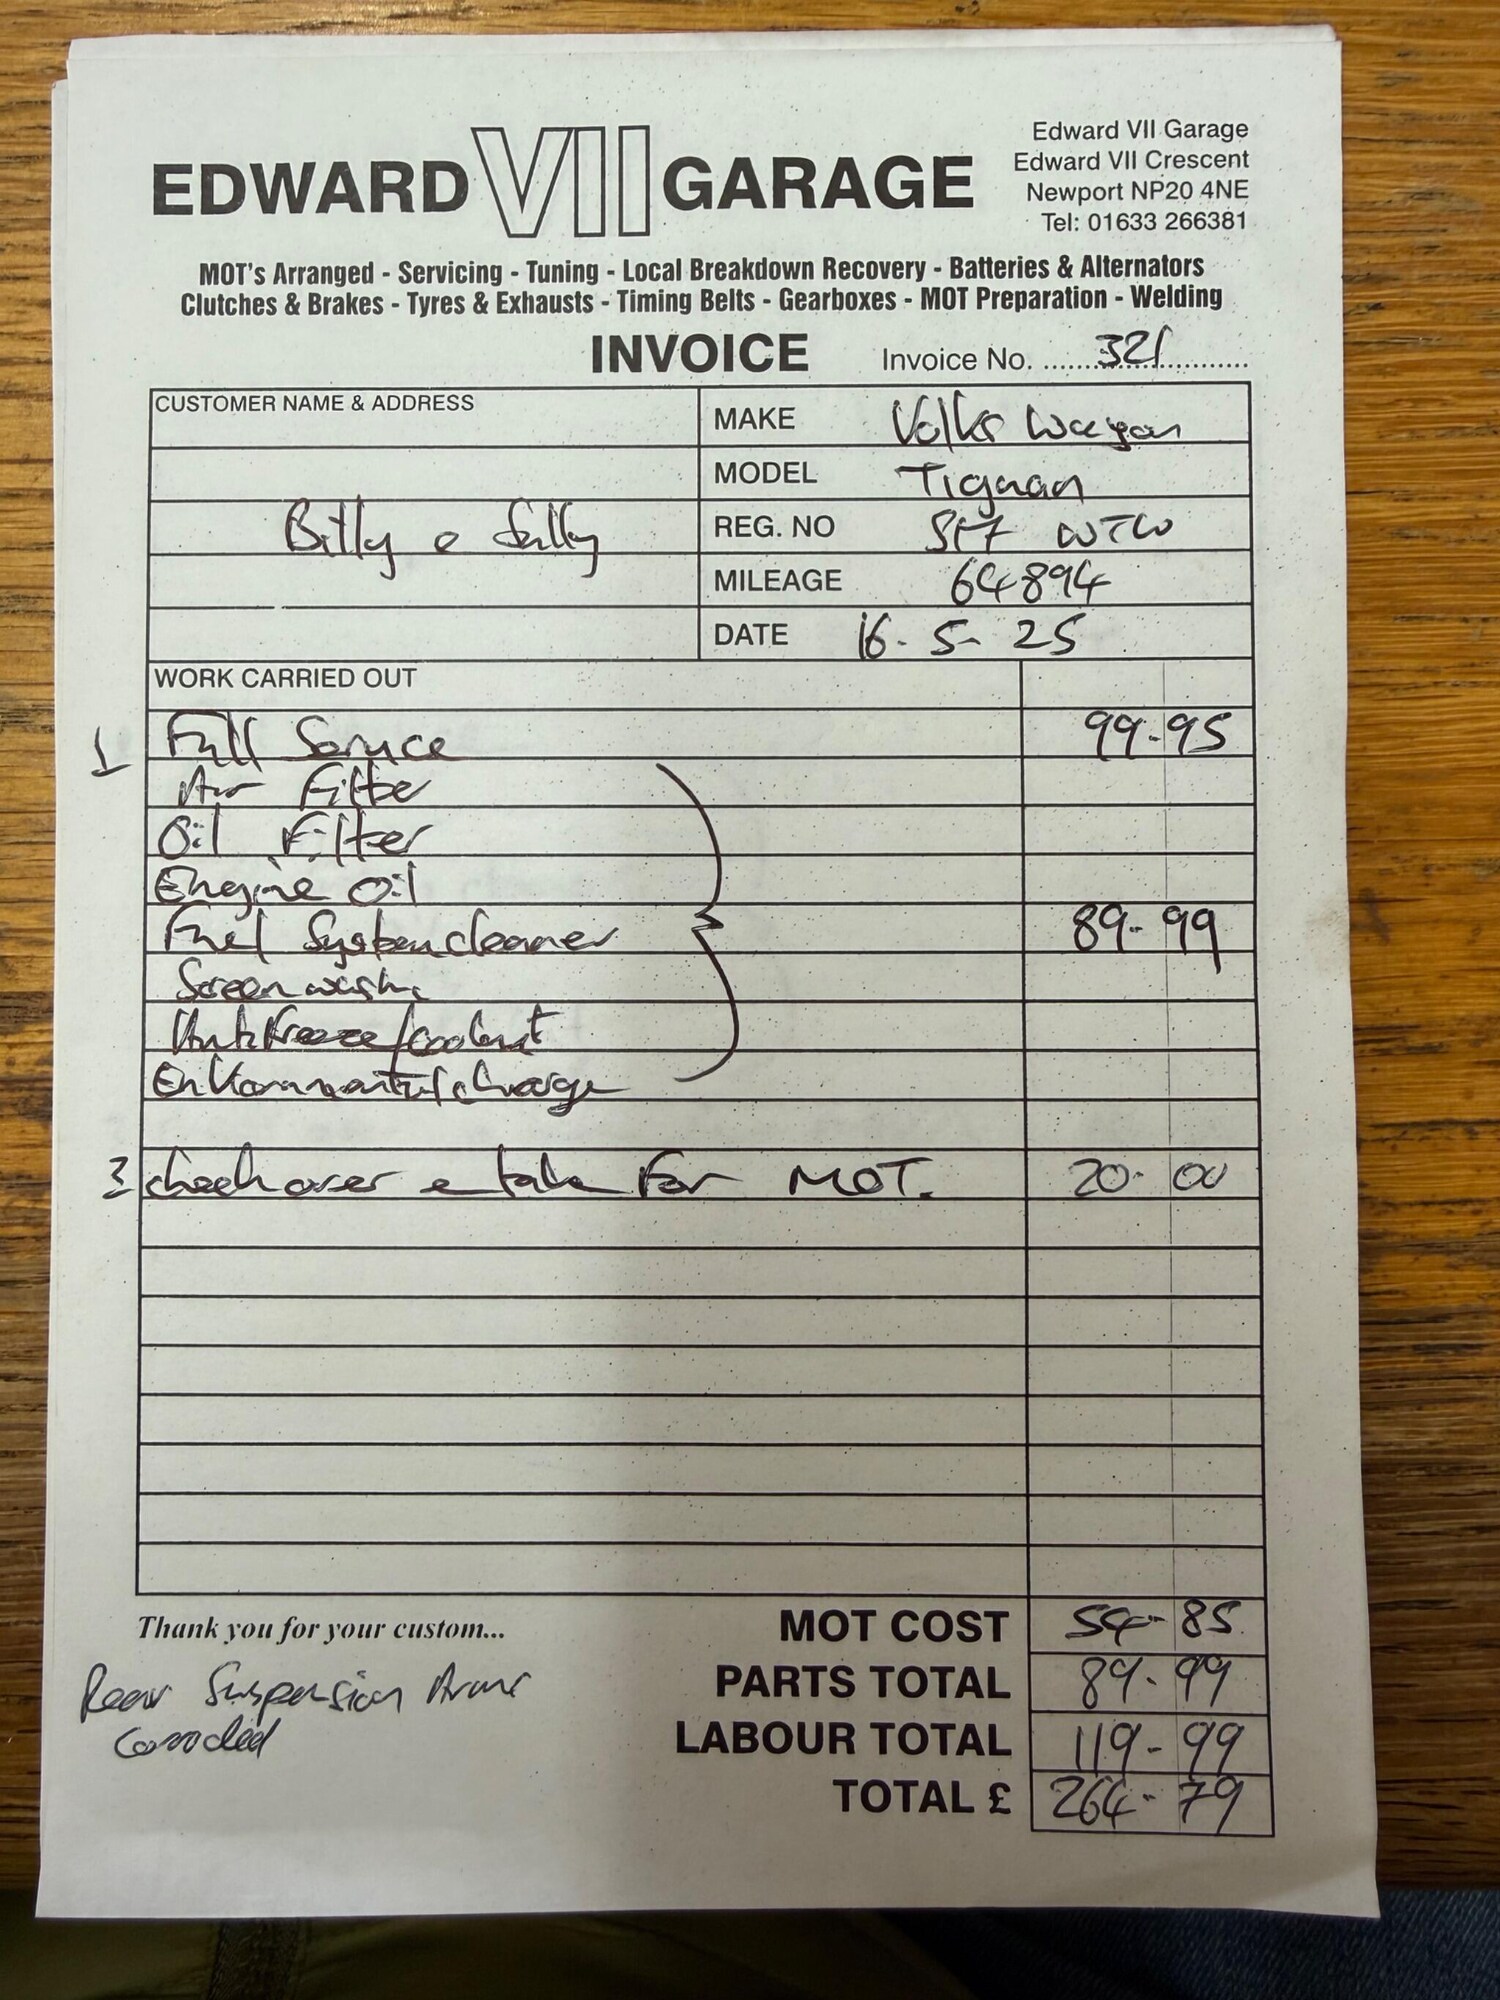 EDWARD VII GARAGE
Edward VII Garage
Edward VII Crescent
Newport NP20 4NE
Tel: 01633 266381
MOT's Arranged - Servicing - Tuning - Local Breakdown Recovery - Batteries & Alternators
Clutches & Brakes - Tyres & Exhausts - Timing Belts - Gearboxes - MOT Preparation - Welding
INVOICE Invoice No. 321
CUSTOMER NAME & ADDRESS
Billy e Sally
MAKE Volks Wagon
MODEL Tiguan
REG. NO WTW
MILEAGE 64894
DATE 16-5-25
WORK CARRIED OUT
1 Full Service 99-95
Air Filter
Oil Filter
Engine Oil
Fuel System cleaner 89-99
Screen wash
Antifreeze/coolant
Enviromental charge
check over e take For MOT. 20-00
Thank you for your custom...
Rear Suspension Arms
corroded
MOT COST 54-85
PARTS TOTAL 89-99
LABOUR TOTAL 119-99
TOTAL £ 264-79